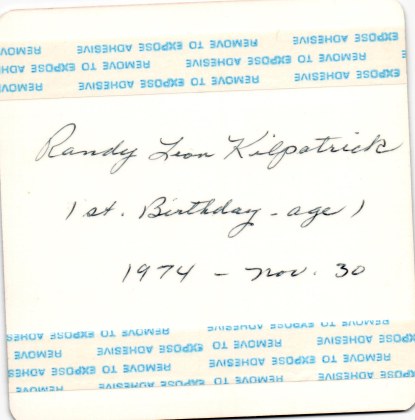 REMOVE EXPOSE ADHESIVE REMOVE TO EXPOSE ADHESIVE REMOVE
EXPOSE ADHESIVE REMOVE TO EXPOSE ADHESIVE REMOVE TO EXPOSE ADHE
REMOVE ADHESIVE REMOVE TO EXPOSE ADHESIVE REMOVE
Randy Leon Kilpatrick
1st. Birthday - age 1
1974 - Nov. 30
REMOVE TO EXPOSE ADHESIVE REMOVE TO EXPOSE ADHES
REMOVE ADHESIVE REMOVE TO EXPOSE ADHESIVE REMOVE
EXPOSE ADHESIVE REMOVE TO EXPOSE ADHESIVE REMOVE TO EXPOSE ADHES
REMOVE ADHESIVE REMOVE TO EXPOSE ADHESIVE REMOVE